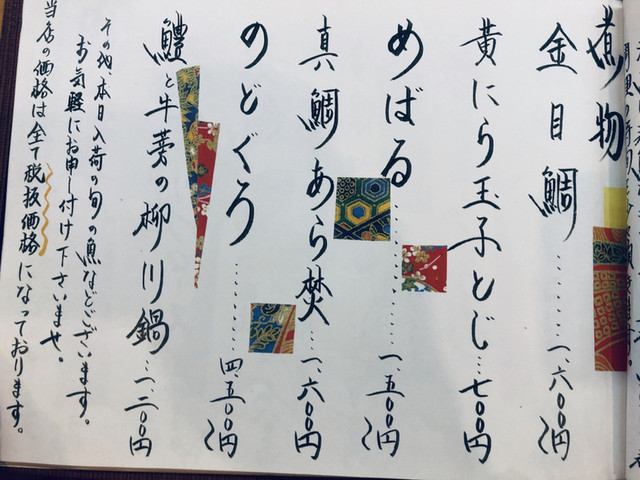 煮物
金目鯛……一、六〇〇円〜
黄にら玉子とじ…七〇〇円
めばる……一、五〇〇円〜
真鯛あら焚…一、六〇〇円
のどぐろ……四、五〇〇円〜
鱧と牛蒡の柳川鍋…一、二〇〇円
その他、本日入荷の旬の魚などございます。
お気軽にお申し付け下さいませ。
当店の価格は全て税抜価格になっております。